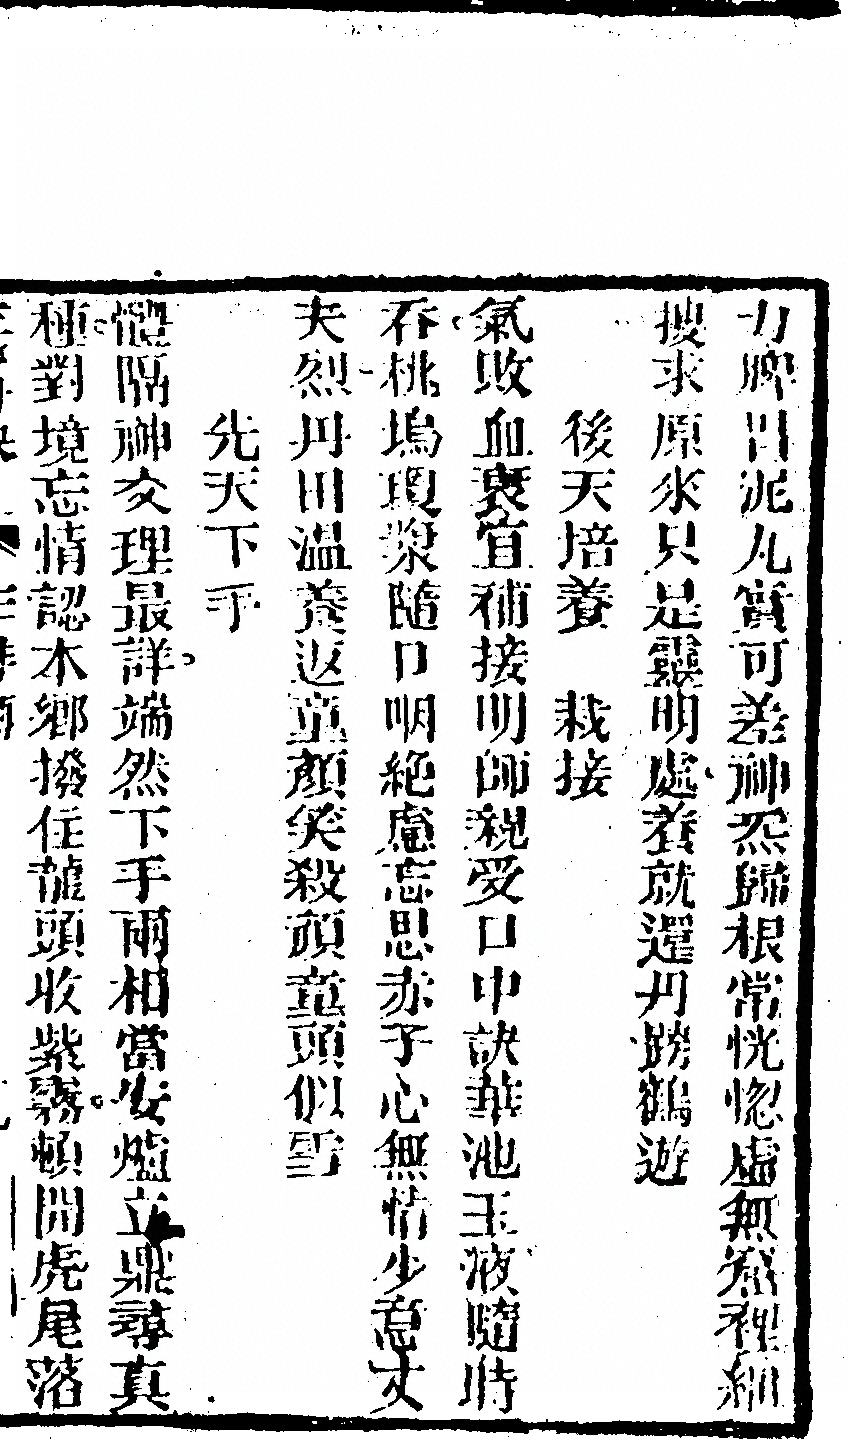 力睥日泥丸實可羞神炁歸根常恍惚虛無窟裡細
搜求原來只是靈明處養就還丹跨鶴遊
後天培養 栽接
氣敗血衰宜補接明師親受口中訣華池玉液隨時
吞桃塢瓊漿隨口咽絶慮忘思赤子心無情少意丈
夫烈丹田温養返童顔笑殺頑童頭似雪
先天下手
體隔神交理最詳端然下手兩相當安爐立鼎尋真
種對境忘情認本鄉撥住龍頭收紫霧頓開虎尾落